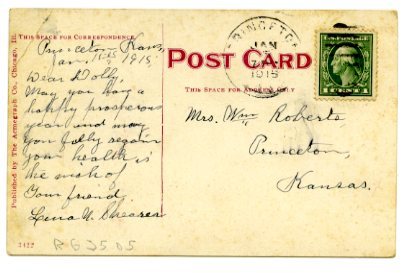 THIS SPACE FOR CORRESPONDENCE
Princeton Kans,
Jan. 1915,
Dear Dolly.
May you have a
happy prosperous
year and may
you fully regain
your health is
the wish of
Your friend,
Lena N. Shearer
Published by The Acmegraph Co. Chicago, Ill.
3422
R63505
POST CARD
THIS SPACE FOR ADDRESS ONLY
PRINCETON
JAN
1915
1 CENT 1
Mrs. Wm Roberts,
Princeton,
Kansas.